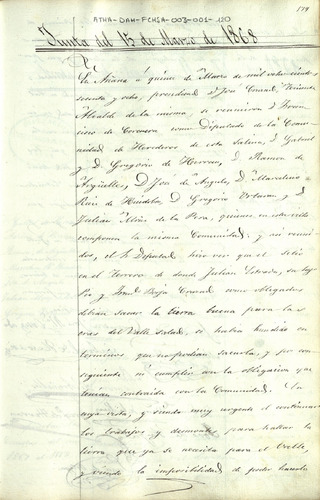 ATHA-DAH-FCHSA-008-001-120
179
Junta del 15 de Marzo de 1868
En Añana á quince de Marzo de mil ochocientos
sesenta y ocho, presididos D. José Conrad, Teniente
Alcalde de la misma se reunieron D.
de como Diputado de la Comu-
nidad de Herederos de estas Salinas, D. Gabriel
y D. Gregorio de Herran, D. Ramon de
Argüelles, D. José de Angulo, D. Marcelino
Ruiz de D. Gregorio y D.
Julian de la Pera, quienes en
componen la misma Comunidad; y asi reuni-
dos, el Sr. Diputado hizo ver que el sitio
en el Terrero de donde Julian Estrada, su hijo
y Borja Conrad como obligados
debian sacar la tierra buena para las
eras del Valle salado, se habia hundido en
terminos que no podian sacarla, y por con-
siguiente ni cumplir con la obligacion que
tenian contraida con la Comunidad. En
cuya vista, y siendo muy urgente el continuar
los trabajos y desmontes para hallar la
tierra que ya se necesita para el Valle,
y viendo la imposibilidad de poder hacerlo